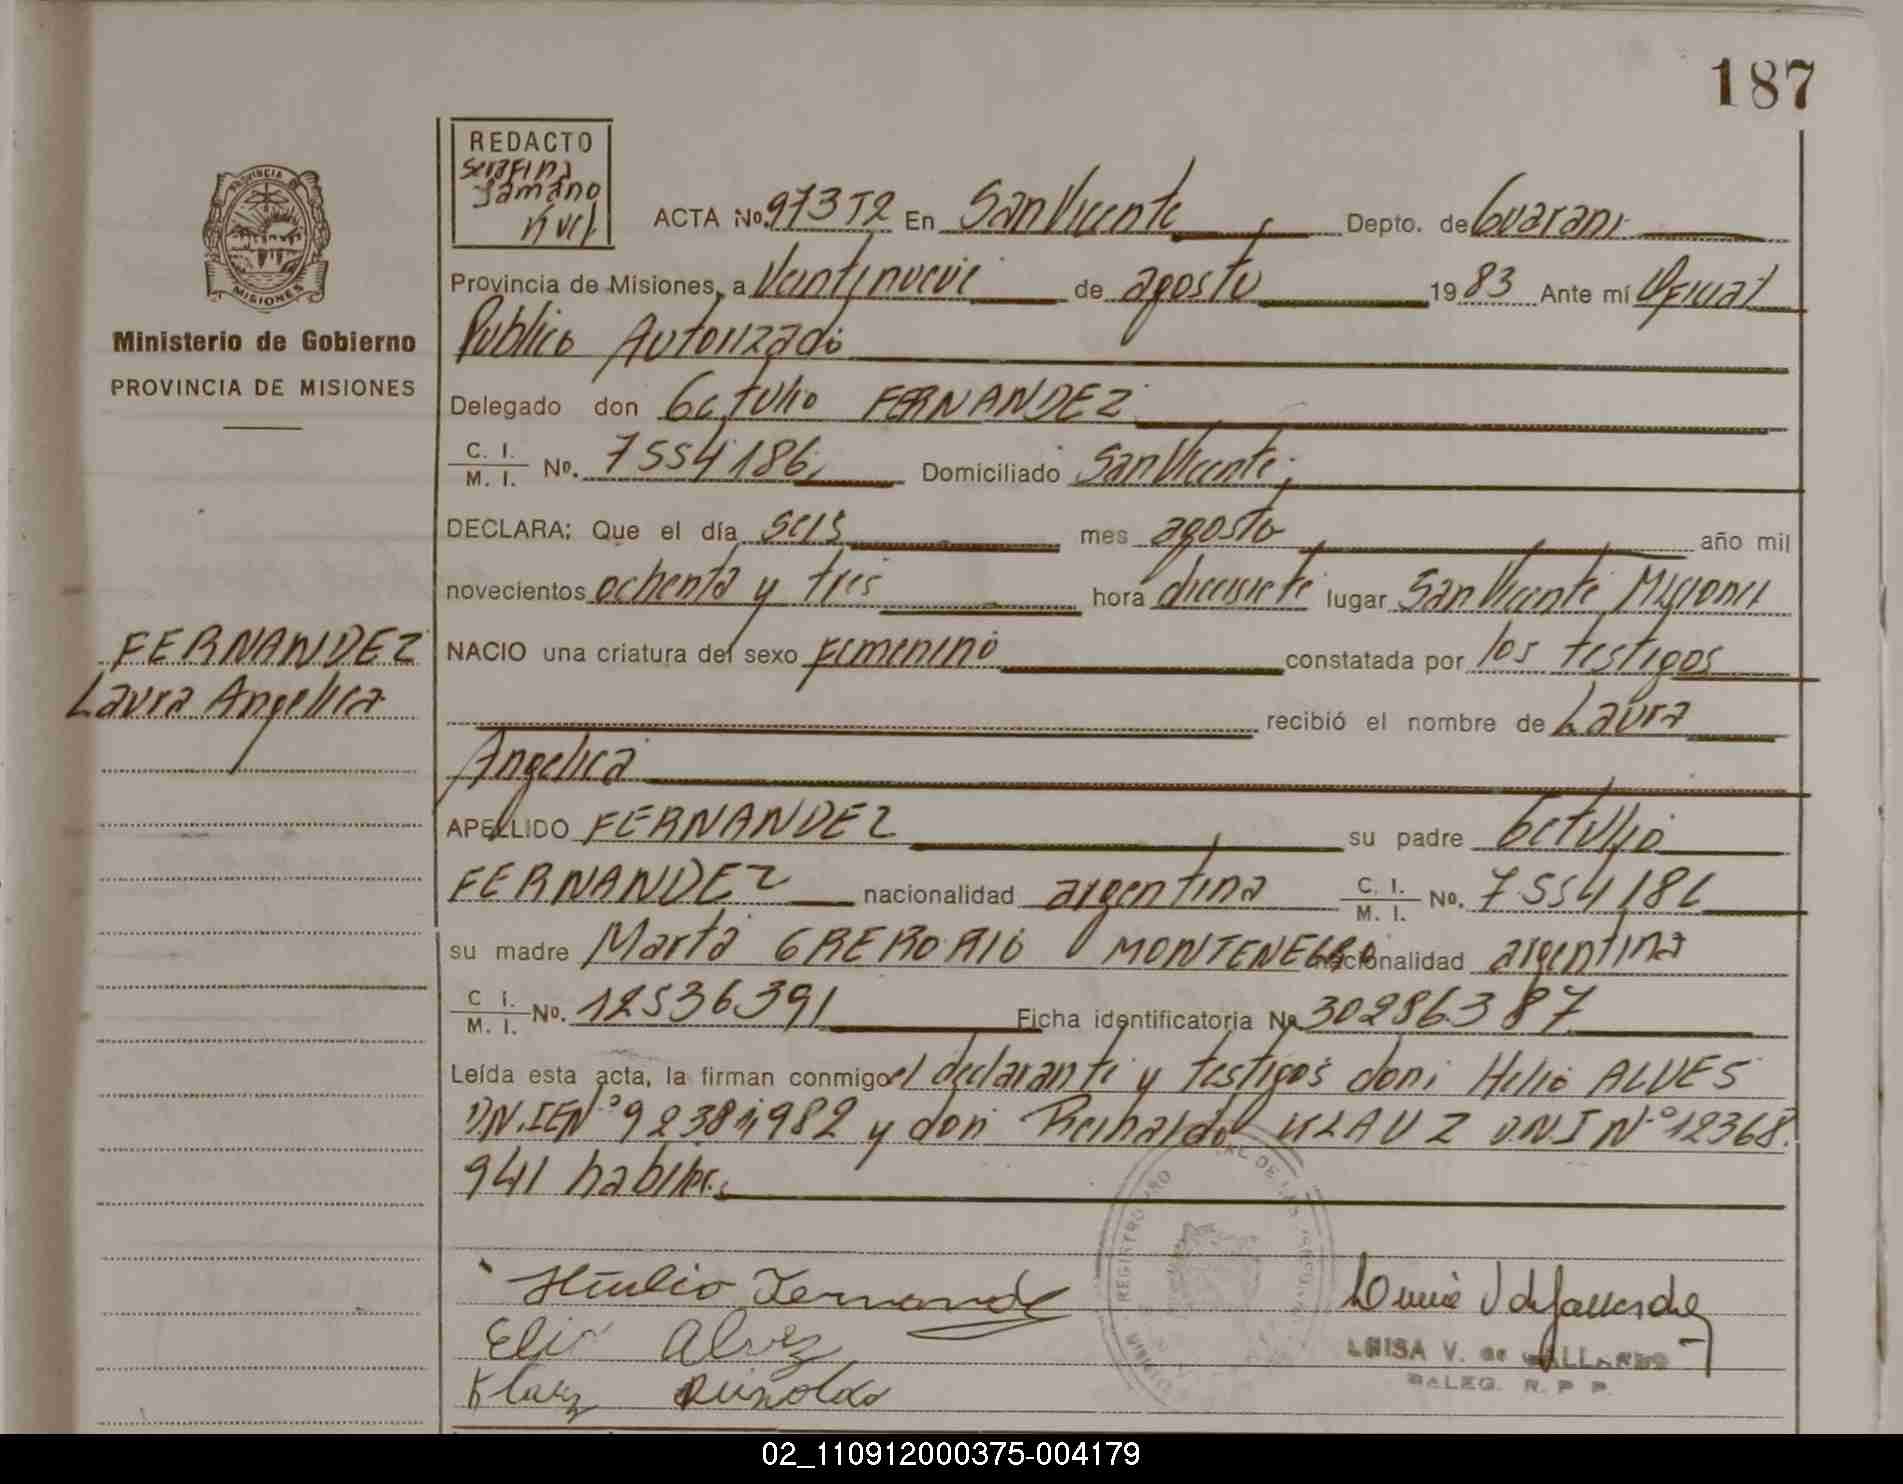 187
REDACTO
Serafina
PROVINCIA DE
MISIONES
Ministerio de Gobierno
PROVINCIA DE MISIONES
ACTA No. 973 T2 En San Vicente, Depto. de Guarani
Provincia de Misiones, a Veintinueve de agosto 1983 Ante mí Oficial
Publico Autorizado
Delegado don Getulio FERNANDEZ
C. I. / M. I. No. 7554186, Domiciliado San Vicente;
DECLARA: Que el día seis mes agosto año mil
novecientos ochenta y tres hora diecisiete lugar San Vicente Misiones
FERNANDEZ
Laura Angelica
NACIO una criatura del sexo femenino constatada por los testigos
recibió el nombre de Laura
Angelica
APELLIDO FERNANDEZ su padre Getulio
FERNANDEZ nacionalidad argentina C. I. / M. I. No. 7554186
su madre Marta GRERORIO MONTENEGRO nacionalidad argentina
C. I. / M. I. No. 12536391 Ficha identificatoria No 30286387
Leída esta acta, la firman conmigo el declarante y testigos don; Helio ALVES
y don Reinaldo KLAUZ D.N.I Nº 12368.
941 habiles.
Elio Alvez
Klauz
LUISA V. de GALLARDO
DELEG. R. P. P.
02_110912000375-004179